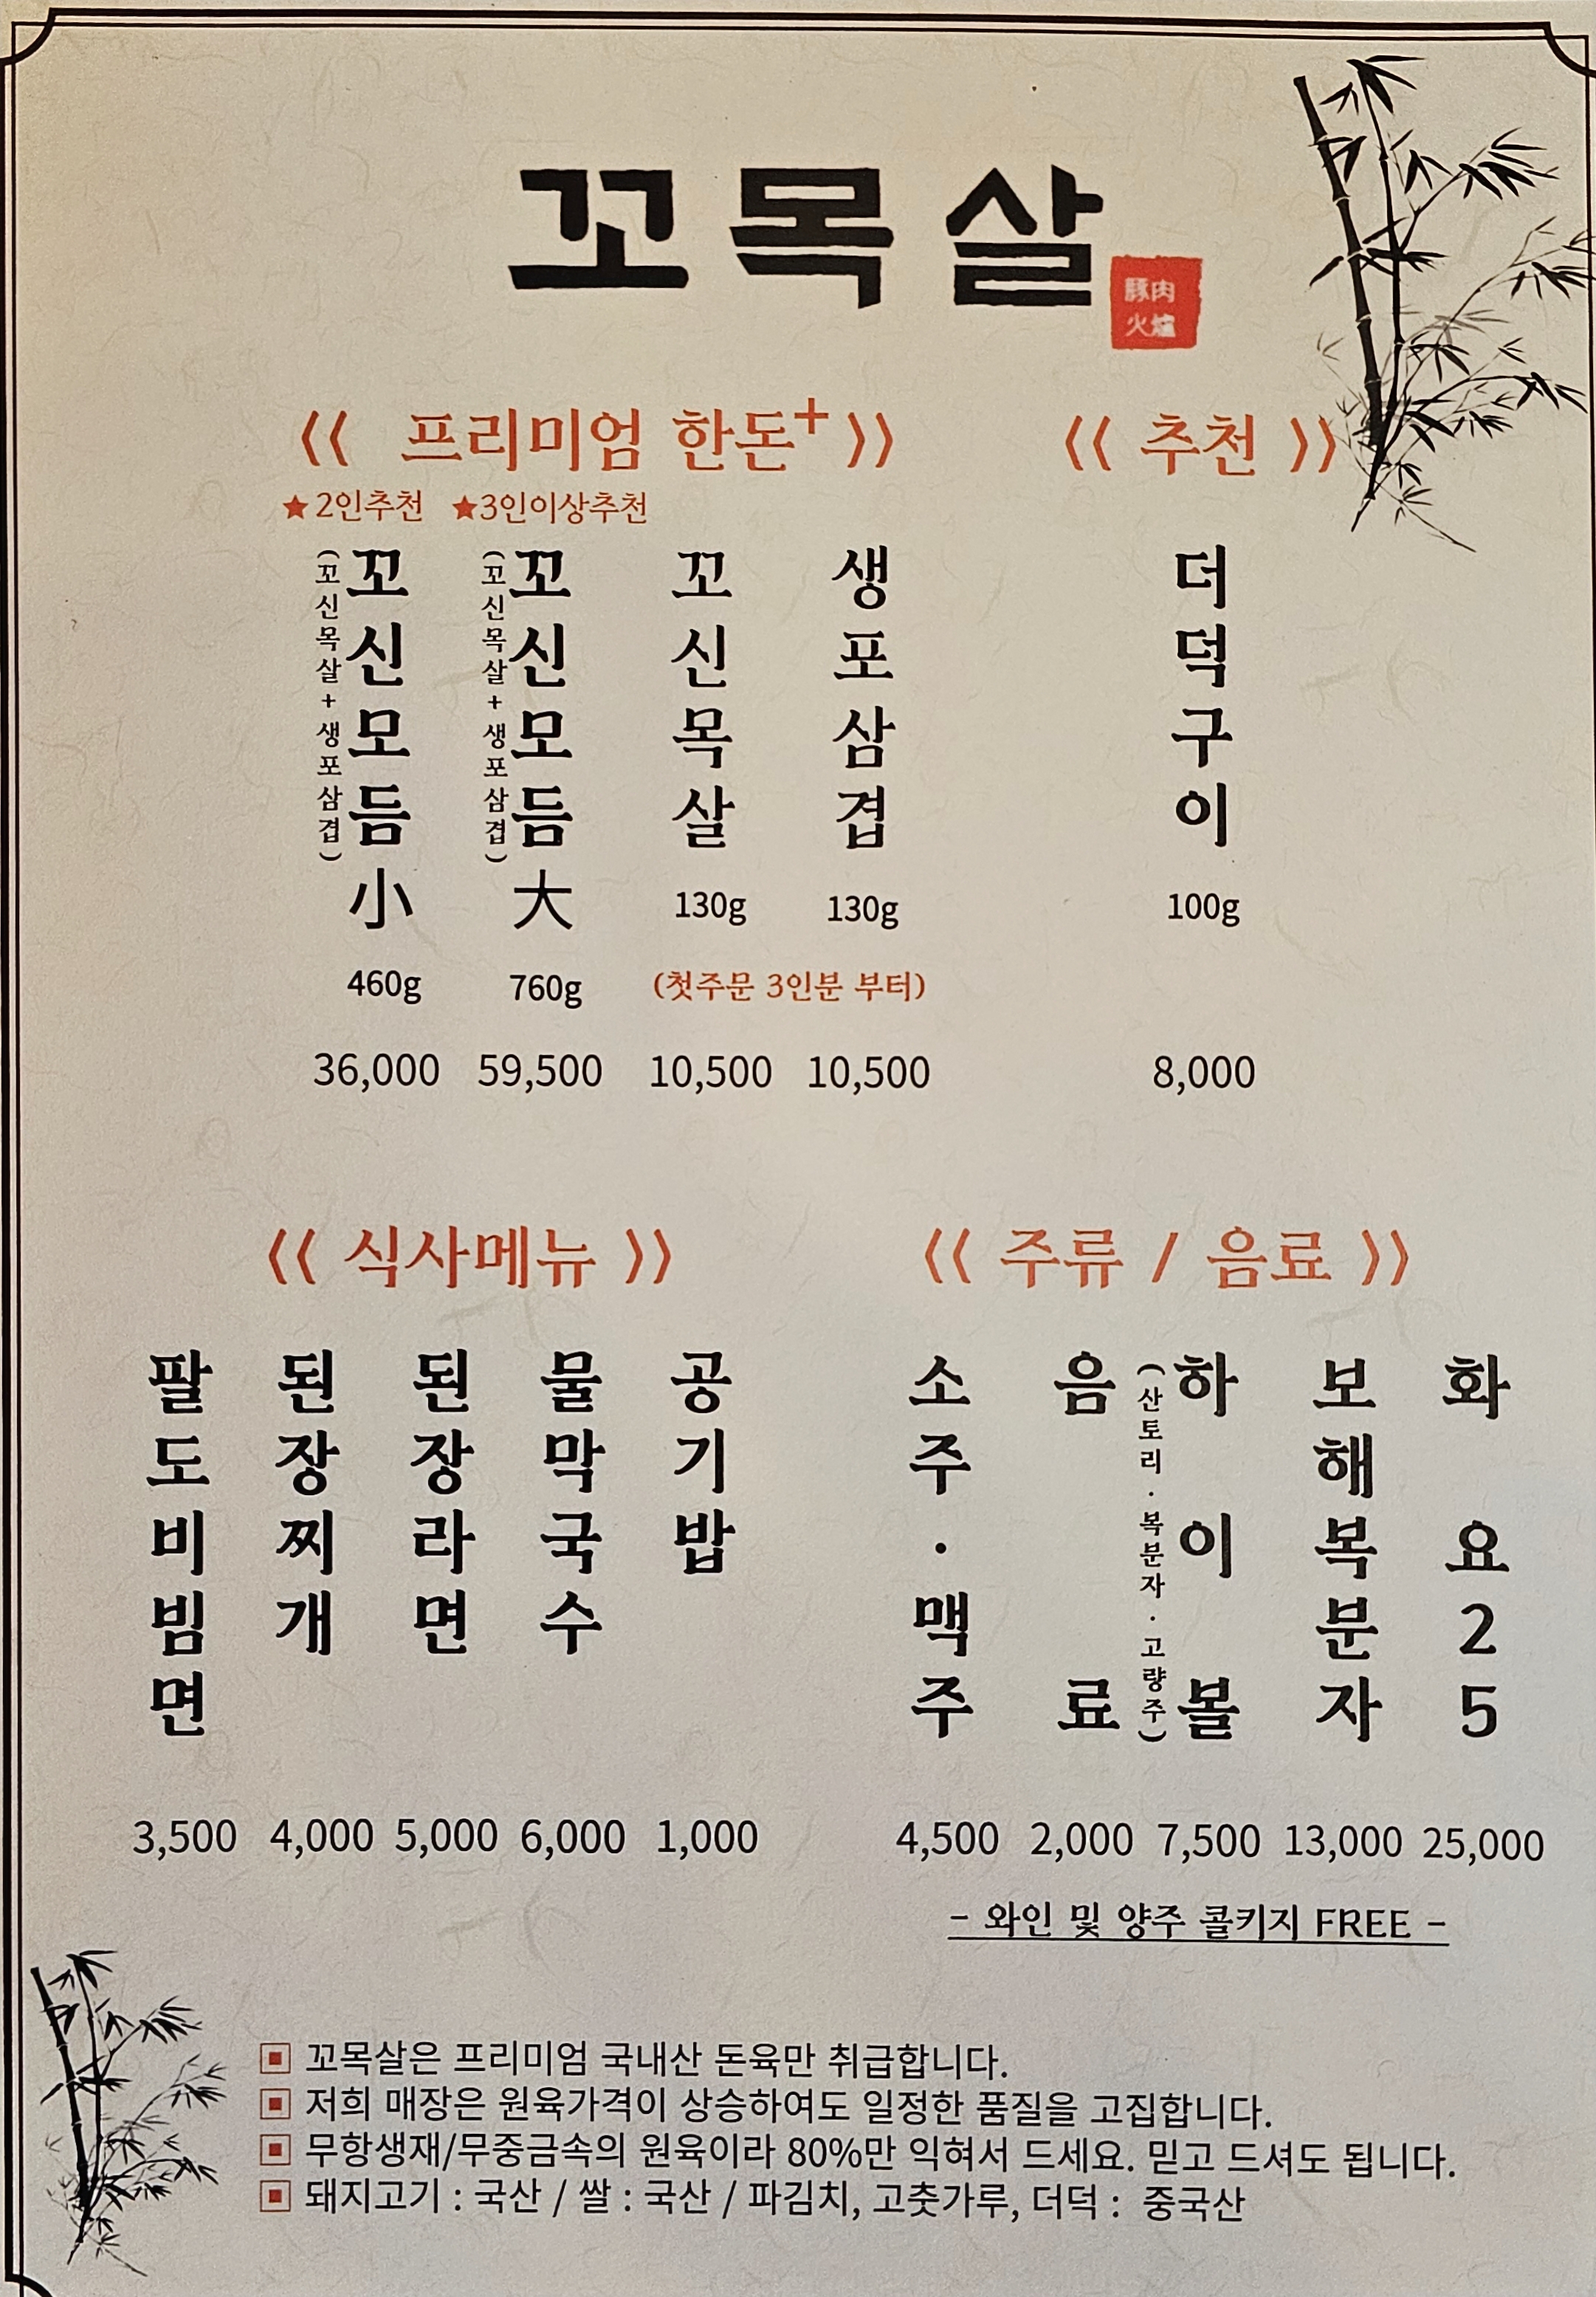 꼬목살
豚肉
火爐
《 프리미엄 한돈+ 》
★2인추천 ★3인이상추천
꼬신모듬小
(꼬신목살+생포삼겹)
460g
36,000
꼬신모듬大
(꼬신목살+생포삼겹)
760g
59,500
꼬신목살
130g
생포삼겹
130g
(첫주문 3인분 부터)
10,500
10,500
《 추천 》
더덕구이
100g
8,000
《 식사메뉴 》
팔도비빔면
3,500
된장찌개
4,000
된장라면
5,000
물막국수
6,000
공기밥
1,000
《 주류 / 음료 》
소주·맥주
4,500
음료
2,000
하이볼
(산토리·복분자·고량주)
7,500
보해복분자
13,000
화요25
25,000
- 와인 및 양주 콜키지 FREE -
꼬목살은 프리미엄 국내산 돈육만 취급합니다.
저희 매장은 원육가격이 상승하여도 일정한 품질을 고집합니다.
무항생재/무중금속의 원육이라 80%만 익혀서 드세요. 믿고 드셔도 됩니다.
돼지고기 : 국산 / 쌀 : 국산 / 파김치, 고춧가루, 더덕 : 중국산